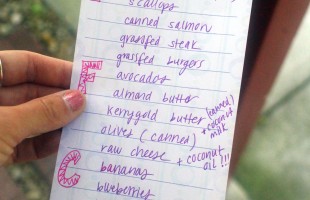 scallops
canned salmon
grassfed steak
grassfed burgers
F
avocados
almond butter
kerrygold butter (canned) + coconut milk
olives (canned)
raw cheese + coconut oil !!!
C
bananas
blueberries